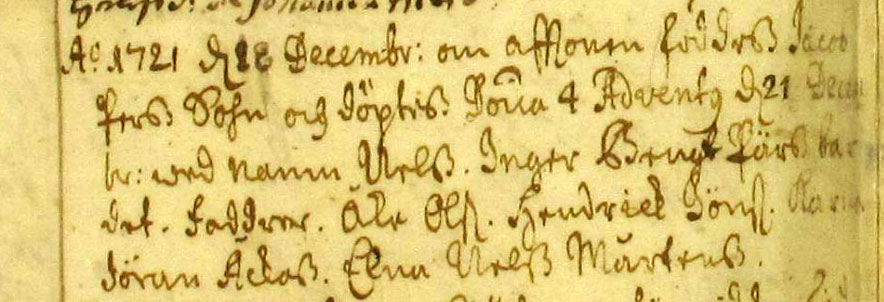 Aõ 1721 d 18 Decembr: om afftonen föddes Jacob
Pers Sohn och döptes Dôca 4 Advents d 21 Decem
br: wed namn Nels. Inger Bengt Pärs bar
det. Faddrer. Åke Ols. Hendrick Jöns. Karna
Jöran Åckes. Elna Nels Mårtens.